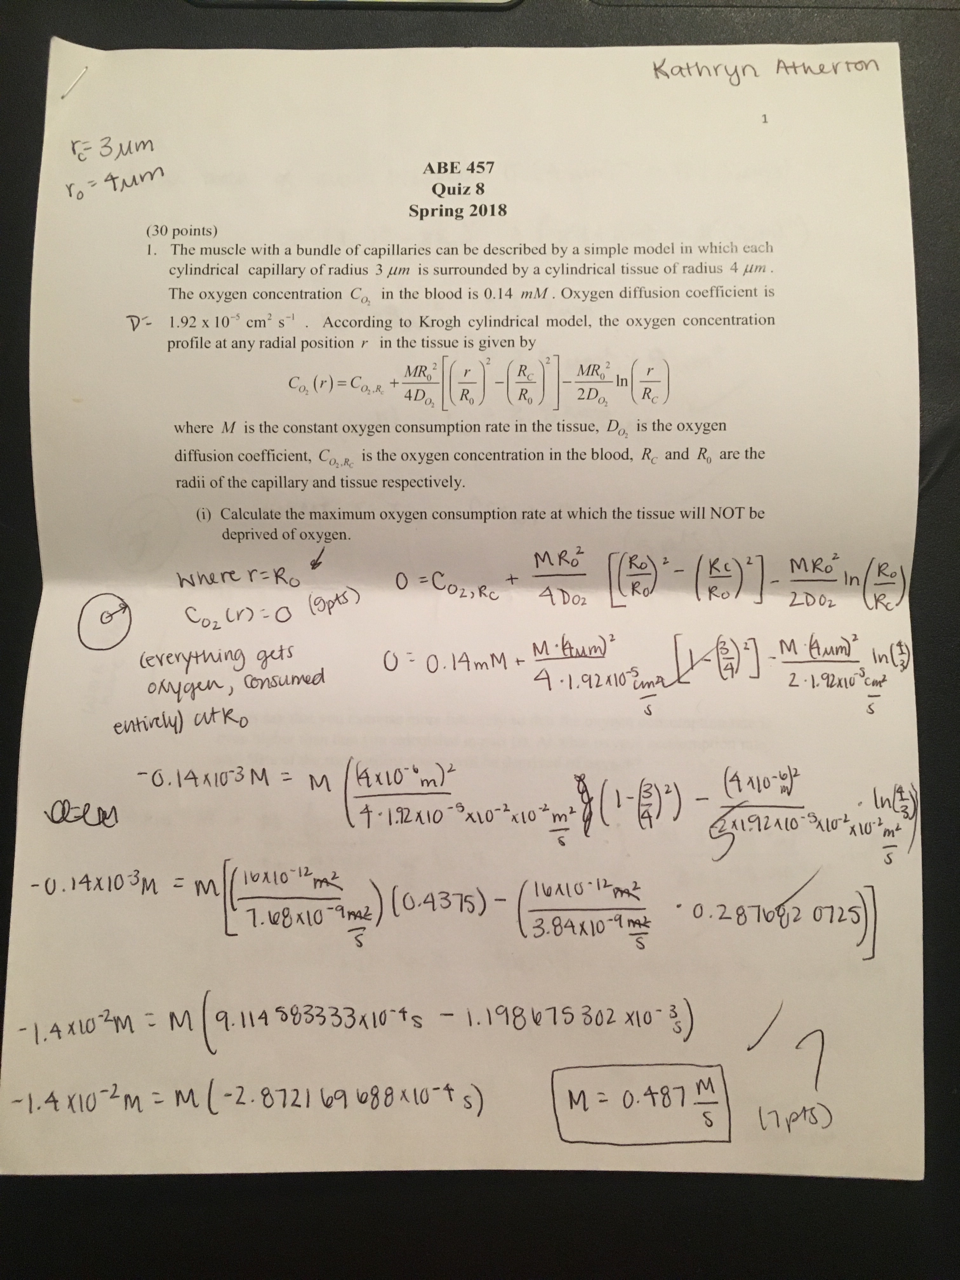 Kathryn Atherton
1
r_c = 3 μm
r_o = 4 μm
ABE 457
Quiz 8
Spring 2018
(30 points)
1. The muscle with a bundle of capillaries can be described by a simple model in which each
cylindrical capillary of radius 3 μm is surrounded by a cylindrical tissue of radius 4 μm.
The oxygen concentration C_O₂ in the blood is 0.14 mM. Oxygen diffusion coefficient is
D = 1.92 x 10⁻⁵ cm² s⁻¹. According to Krogh cylindrical model, the oxygen concentration
profile at any radial position r in the tissue is given by
C_O₂(r) = C_O₂,R_C + MR₀²/4D_O₂ [(r/R₀)² − (R_C/R₀)²] − MR₀²/2D_O₂ ln(r/R_C)
where M is the constant oxygen consumption rate in the tissue, D_O₂ is the oxygen
diffusion coefficient, C_O₂,R_C is the oxygen concentration in the blood, R_C and R₀ are the
radii of the capillary and tissue respectively.
(i) Calculate the maximum oxygen consumption rate at which the tissue will NOT be
deprived of oxygen.
where r = R₀
0 = C_O₂,R_C + MR₀²/4D_O₂ [(R₀/R₀)² − (R_C/R₀)²] − MR₀²/2D_O₂ ln(R₀/R_C)
C_O₂(r) = 0 (9pts)
(everything gets
oxygen, consumed
entirely) at R₀
0 = 0.14mM + M·(4μm)²/4·1.92x10⁻⁵ cm²/s [1 − (3/4)²] − M·(4μm)²/2·1.92x10⁻⁵ cm²/s ln(4/3)
-0.14x10-3 M = M ((4x10⁻⁶m)²/4·1.92x10⁻⁵x10⁻²x10⁻² m²/s (1 − (3/4)²) − (4x10⁻⁶m)²/2x1.92x10⁻⁵x10⁻²x10⁻² m²/s · ln(4/3))
-0.14x10-3M = M[(16x10⁻¹² m²/7.68x10⁻⁹ m²/s)(0.4375) − (16x10⁻¹² m²/3.84x10⁻⁹ m²/s · 0.2876820725)]
-1.4x10⁻²M = M(9.114583333x10⁻⁴ s − 1.198675302 x10⁻³ s)
-1.4x10⁻²M = M(-2.872169688x10⁻⁴ s)
M = 0.487 M/s
(7pts)